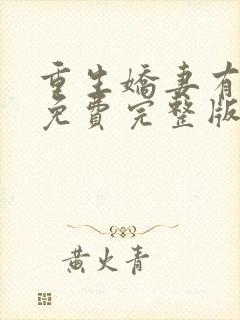 重生嬌妻有
免費完整版
黄火青